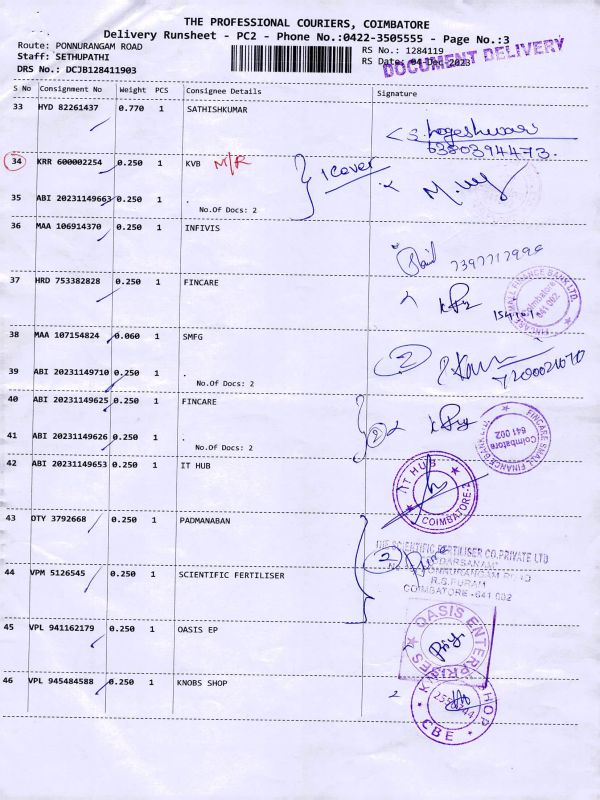 THE PROFESSIONAL COURIERS, COIMBATORE
Delivery Runsheet - PC2 - Phone No.:0422-3505555 - Page No.:3
Route: PONNURANGAM ROAD
RS No.: 1284119
Staff: SETHUPATHI
RS Date: 04-Dec-2023
DOCUMENT DELIVERY
DRS No.: DCJB128411903
S No Consignment No Weight PCS Consignee Details Signature
33 HYD 82261437 0.770 1 SATHISHKUMAR
6380394473
34 KRR 600002254 0.250 1 KVB M/R
1 cover
35 ABI 20231149663 0.250 1 .
No.Of Docs: 2
36 MAA 106914370 0.250 1 INFIVIS
37 HRD 753382828 0.250 1 FINCARE
FINCARE SMALL FINANCE BANK LTD.
Coimbatore
641 002
38 MAA 107154824 0.060 1 SMFG
2
39 ABI 20231149710 0.250 1 .
No.Of Docs: 2
40 ABI 20231149625 0.250 1 FINCARE
2
FINCARE SMALL FINANCE BANK LTD.
Coimbatore
641 002
41 ABI 20231149626 0.250 1 .
No.Of Docs: 2
42 ABI 20231149653 0.250 1 IT HUB
IT HUB
COIMBATORE-2
43 OTY 3792668 0.250 1 PADMANABAN
THE SCIENTIFIC FERTILISER CO.PRIVATE LTD
2
R.S.PURAM
COIMBATORE-641 002
44 VPM 5126545 0.250 1 SCIENTIFIC FERTILISER
45 VPL 941162179 0.250 1 OASIS EP
OASIS ENTERPRISES
46 VPL 945484588 0.250 1 KNOBS SHOP
SHOP
CBE